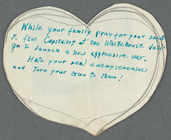 While your family pray for your safety
A few Capitalist at the Whitehouse
go to launch a new aggressive war.
Hate your real enemy (enemies)
and Turn your Gun to Them!